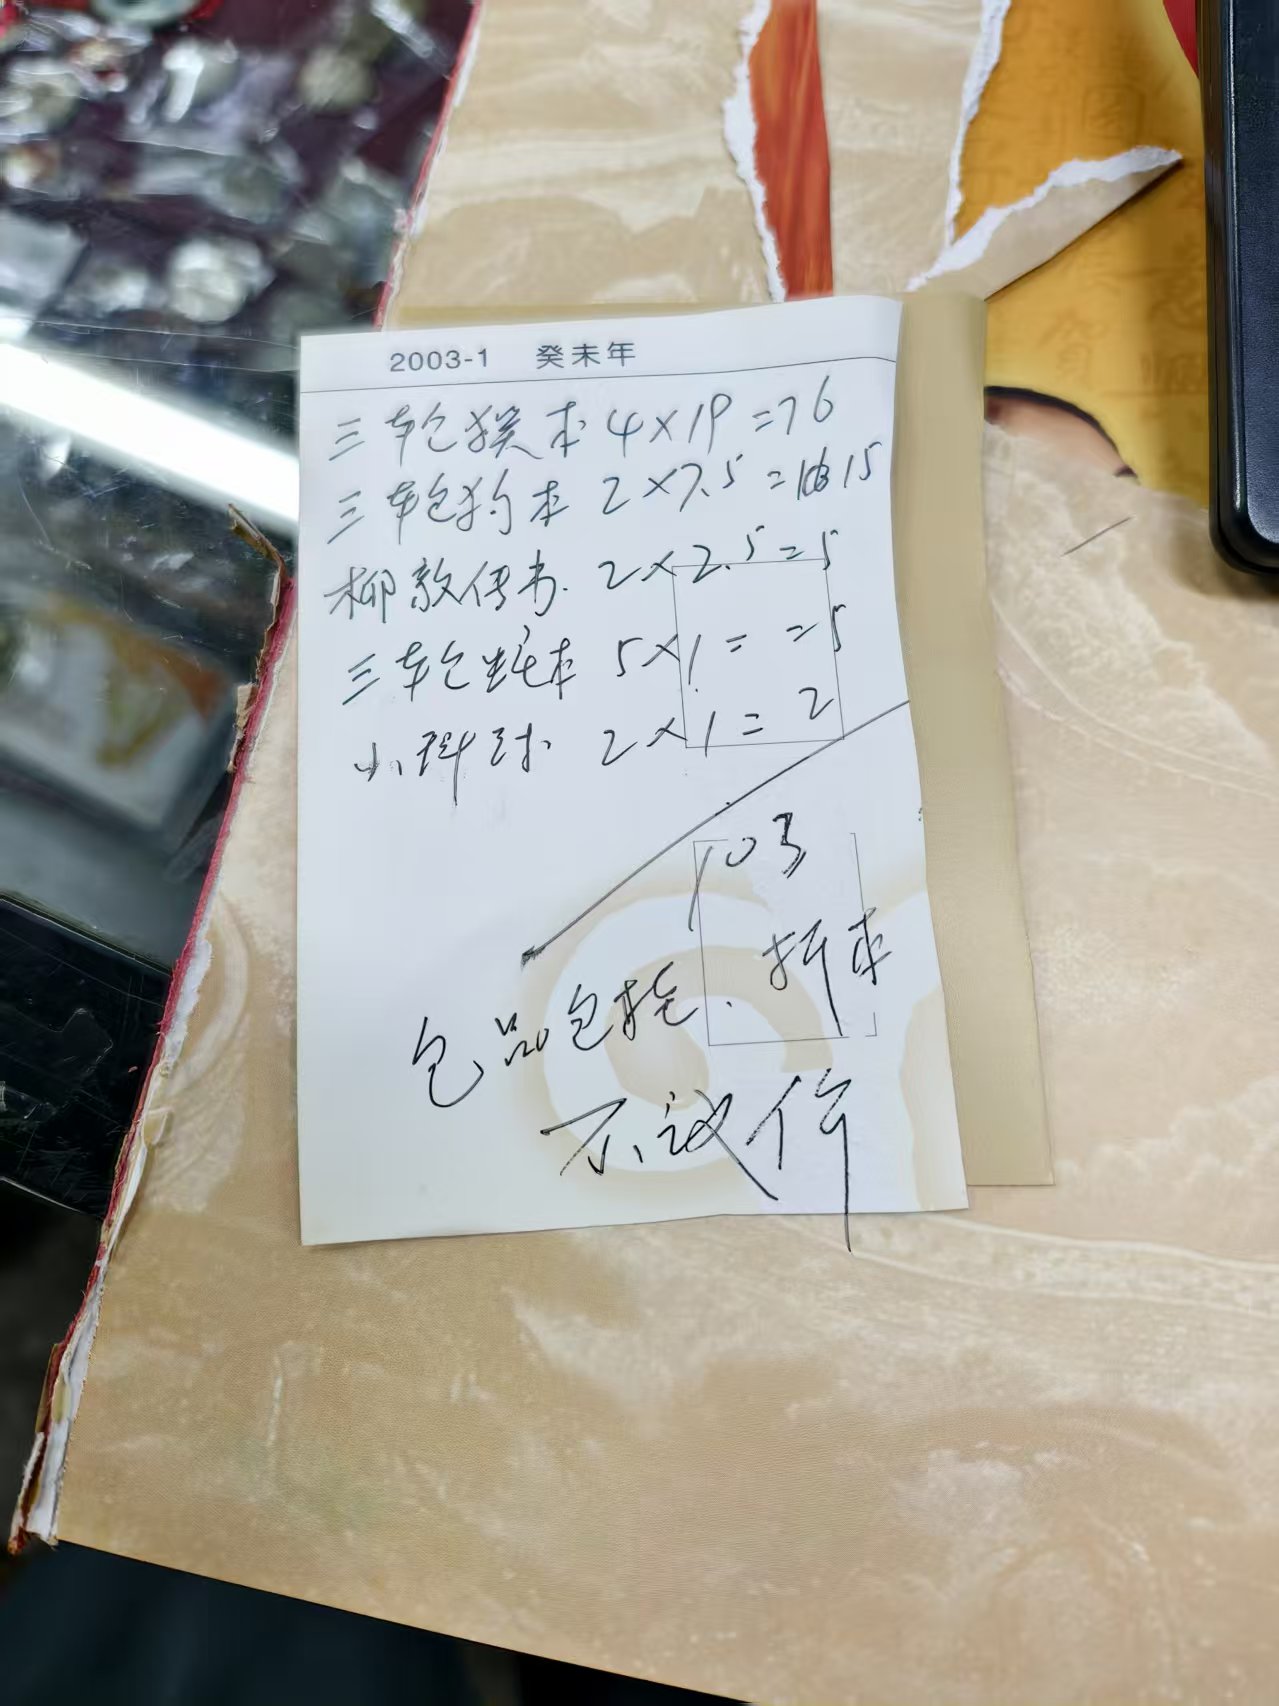 2003-1 癸未年
三轮猴本 4×19=76
三轮狗本 2×7.5=15
柳毅传书. 2×2.5=5
三轮蛇本 5×1= =5
小 2×1=2
103
包品包挂. 折本
不议价